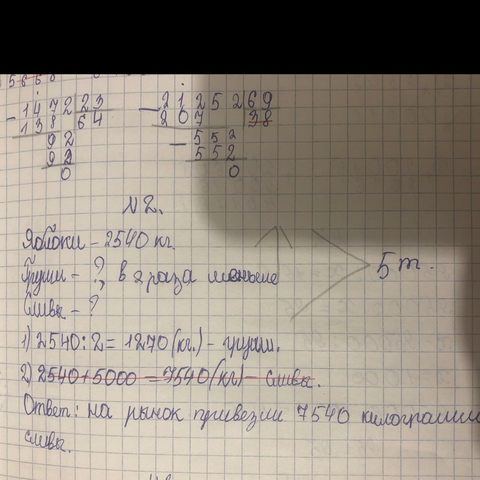 1472 23
- 138 64
92
92
0
21252 69
- 207 38
- 552
552
0
№2.
Яблоки - 2540 кг.
Груши - ?, в 2 раза меньше
Сливы - ?
5 т.
1) 2540 : 2 = 1270 (кг.) - груши.
2) 2540 + 5000 = 7540 (кг) - сливы.
Ответ: на рынок привезли 7540 килограмм
сливы.